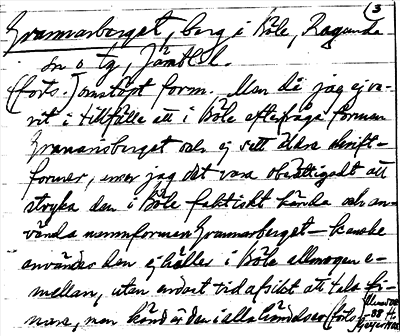 (3
Granmarberget, berg i Böle, Ragunda
sn o tg, Jämtl.
(forts.) omstöpt form. Men då jag ej va-
rit i tillfälle att i Böle efterfråga formen
Granansberget och ej sett äldre skrift-
former, anser jag det vara obefogat att
stryka den i Böle faktiskt kända och an-
vända namnformen Granmarberget – kanske
användes den ej heller i Böle allmogen e-
mellan, utan endast vid afsikt att tala fi-
nare, men känd är den i alla händelser (forts.